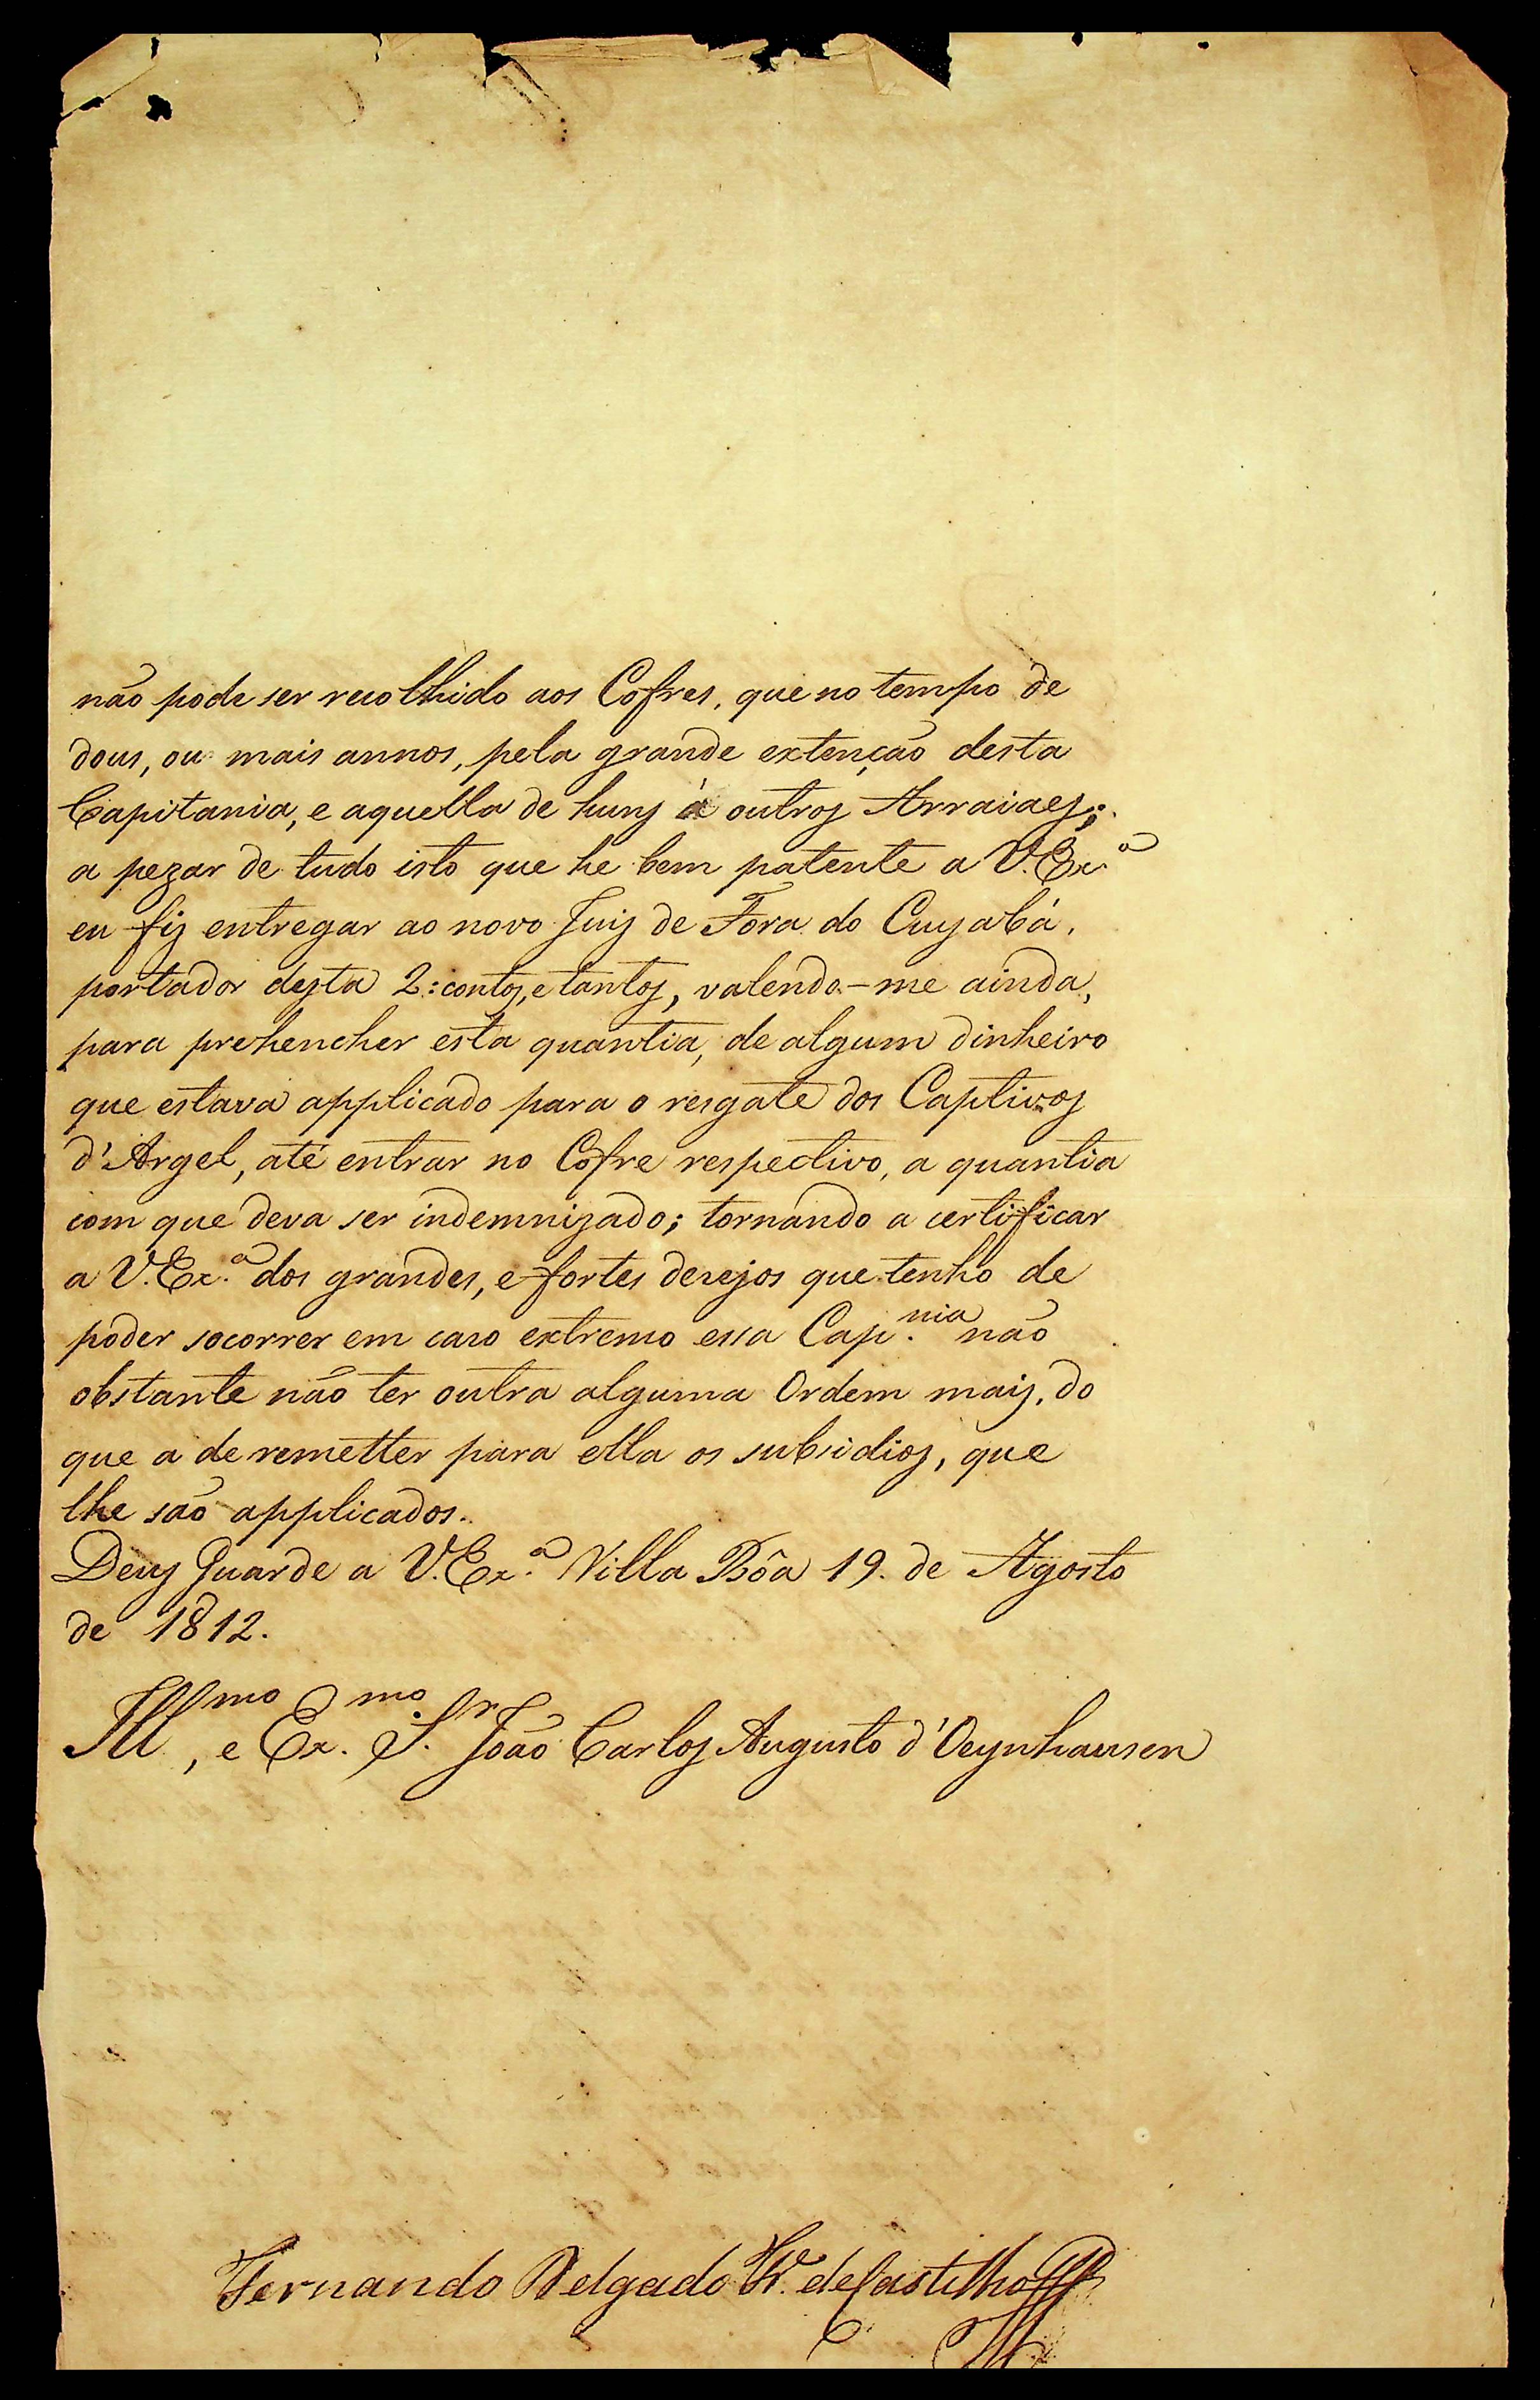 não pode ser recolhido aos Cofres, que no tempo de
dous, ou mais annos, pela grande extenção desta
Capitania, e aquella de huns á outros Arraiaes;
a pezar de tudo isto que he bem patente a V. Ex.ª
eu fiz entregar ao novo Juiz de Fora do Cuyabá,
portador desta 2:contos, e tantos, valendo-me ainda,
para prehencher esta quantia, de algum dinheiro
que estava applicado para o resgate dos Captivos
d'Argel, até entrar no Cofre respectivo, a quantia
com que deva ser indemnizado; tornando a certificar
a V. Ex.ª dos grandes, e fortes dezejos que tenho de
poder socorrer em cazo extremo essa Cap.nia não
obstante não ter outra alguma Ordem mais, do
que a de remetter para ella os subsidios, que
lhe são applicados.
Deus Guarde a V. Ex.ª Villa Bôa 19. de Agosto
de 1812.
Ill.mo, e Ex.mo S.r João Carlos Augusto d'Oeynhausen
Fernando Delgado Fr.e de Castilho